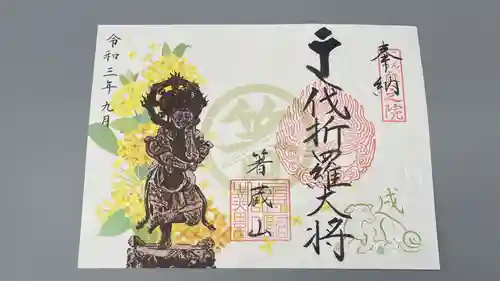 奉納
伐折羅大将
戌
箸蔵山
令和三年九月